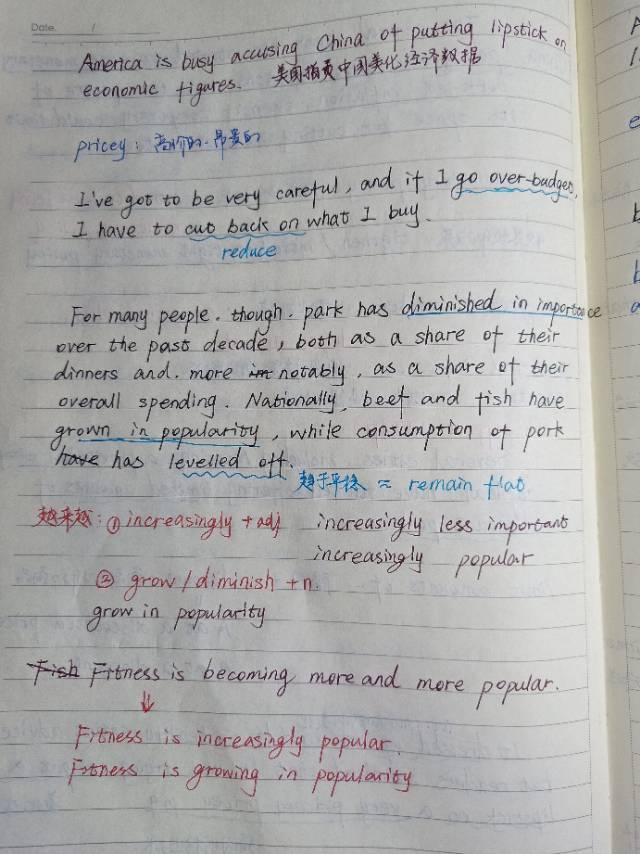 Date. /
America is busy accusing China of putting lipstick on
economic figures. 美国指责中国美化经济数据
pricey: 高价的.昂贵的
I've got to be very careful, and if I go over-budget,
I have to cut back on what I buy.
reduce
For many people. though. park has diminished in importance
over the past decade, both as a share of their
dinners and. more im notably, as a share of their
overall spending. Nationally, beef and fish have
grown in popularity, while consumption of pork
have has levelled off.
趋于平稳 ≈ remain flat
越来越: ① increasingly + adj increasingly less important
increasingly popular
② grow / diminish + n.
grow in popularity
Fish Fitness is becoming more and more popular.
↓
Fitness is increasingly popular.
Fitness is growing in popularity